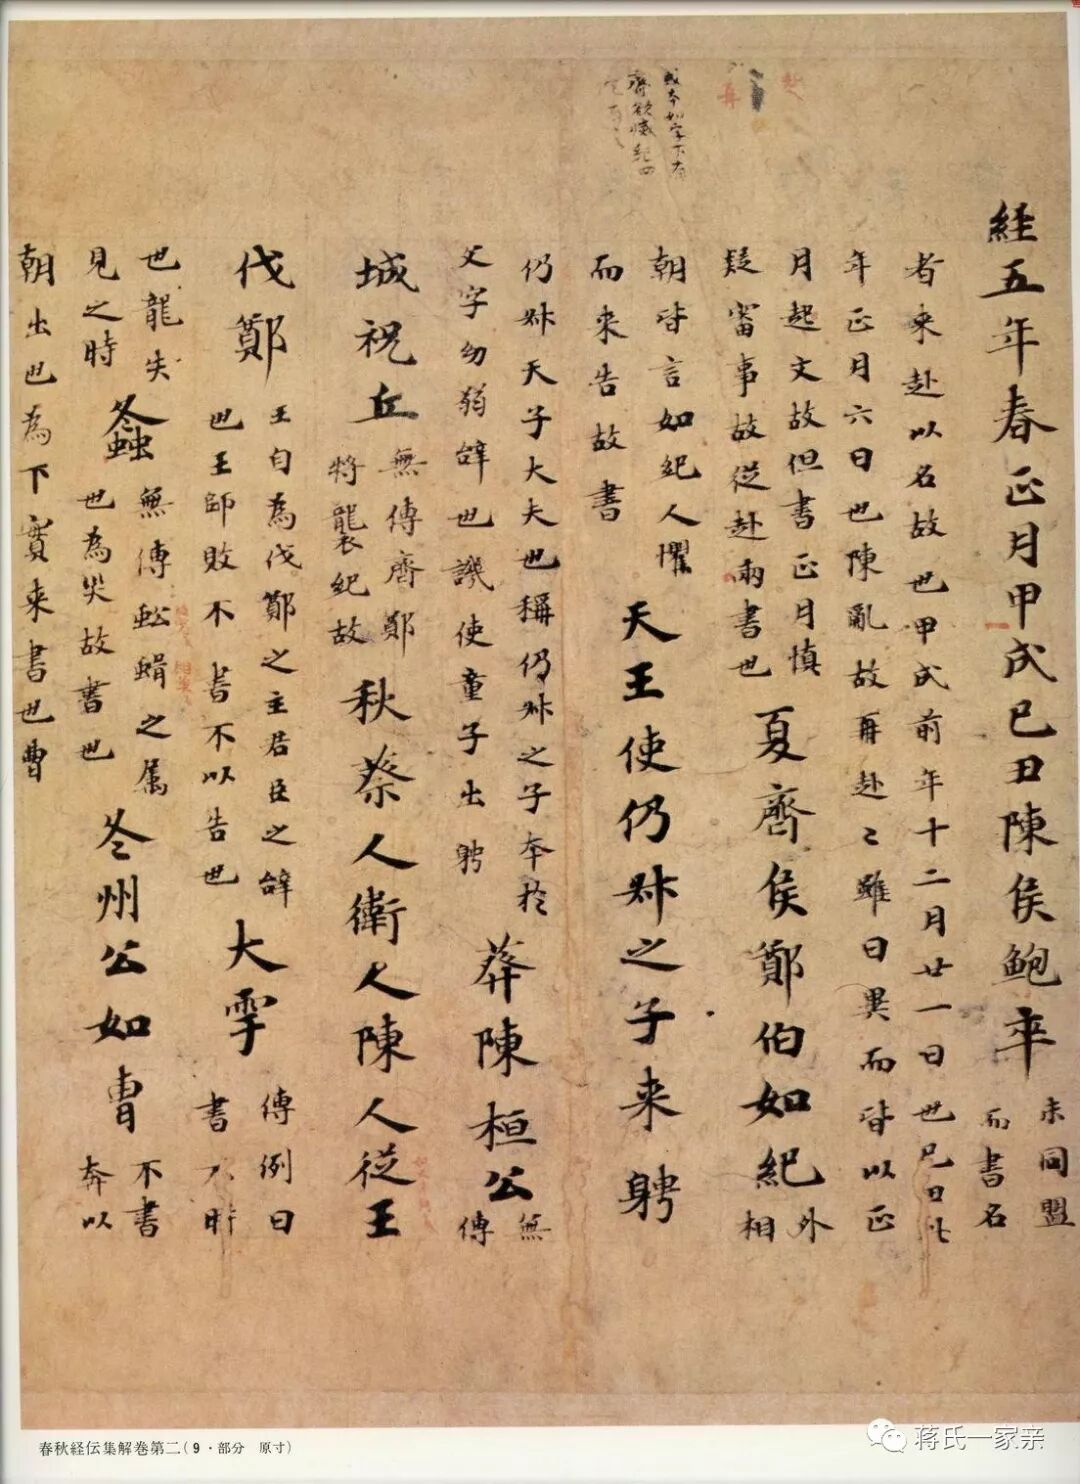 経五年春正月甲戌己丑陳侯鮑卒
未同盟
而書名
者来赴以名故也甲戌前年十二月廿一日也己丑此
年正月六日也陳亂故再赴〻雖日異而皆以正
月起文故但書正月慎
疑審事故従赴兩書也
夏齊侯鄭伯如紀
外
相
朝皆言如紀人懼
而来告故書
天王使仍叔之子来聘
仍叔天子大夫也稱仍叔之子本於
父字幼弱辝也譏使童子出聘
葬陳桓公
無
傳
城祝丘
無傳齊鄭
将襲紀故
秋蔡人衛人陳人従王
伐鄭
王自為伐鄭之主君臣之辝
也王師敗不書不以告也
大雩
傳例曰
書不時
也龍失
見之時
螽
無傳蚣蝑之属
也為災故書也
冬州公如曹
不書
奔以
朝出也為下實来書也曹
赴
再
或本如字下有
齊欲滅紀四
春秋経伝集解巻第二(9・部分　原寸)
蒋氏一家亲